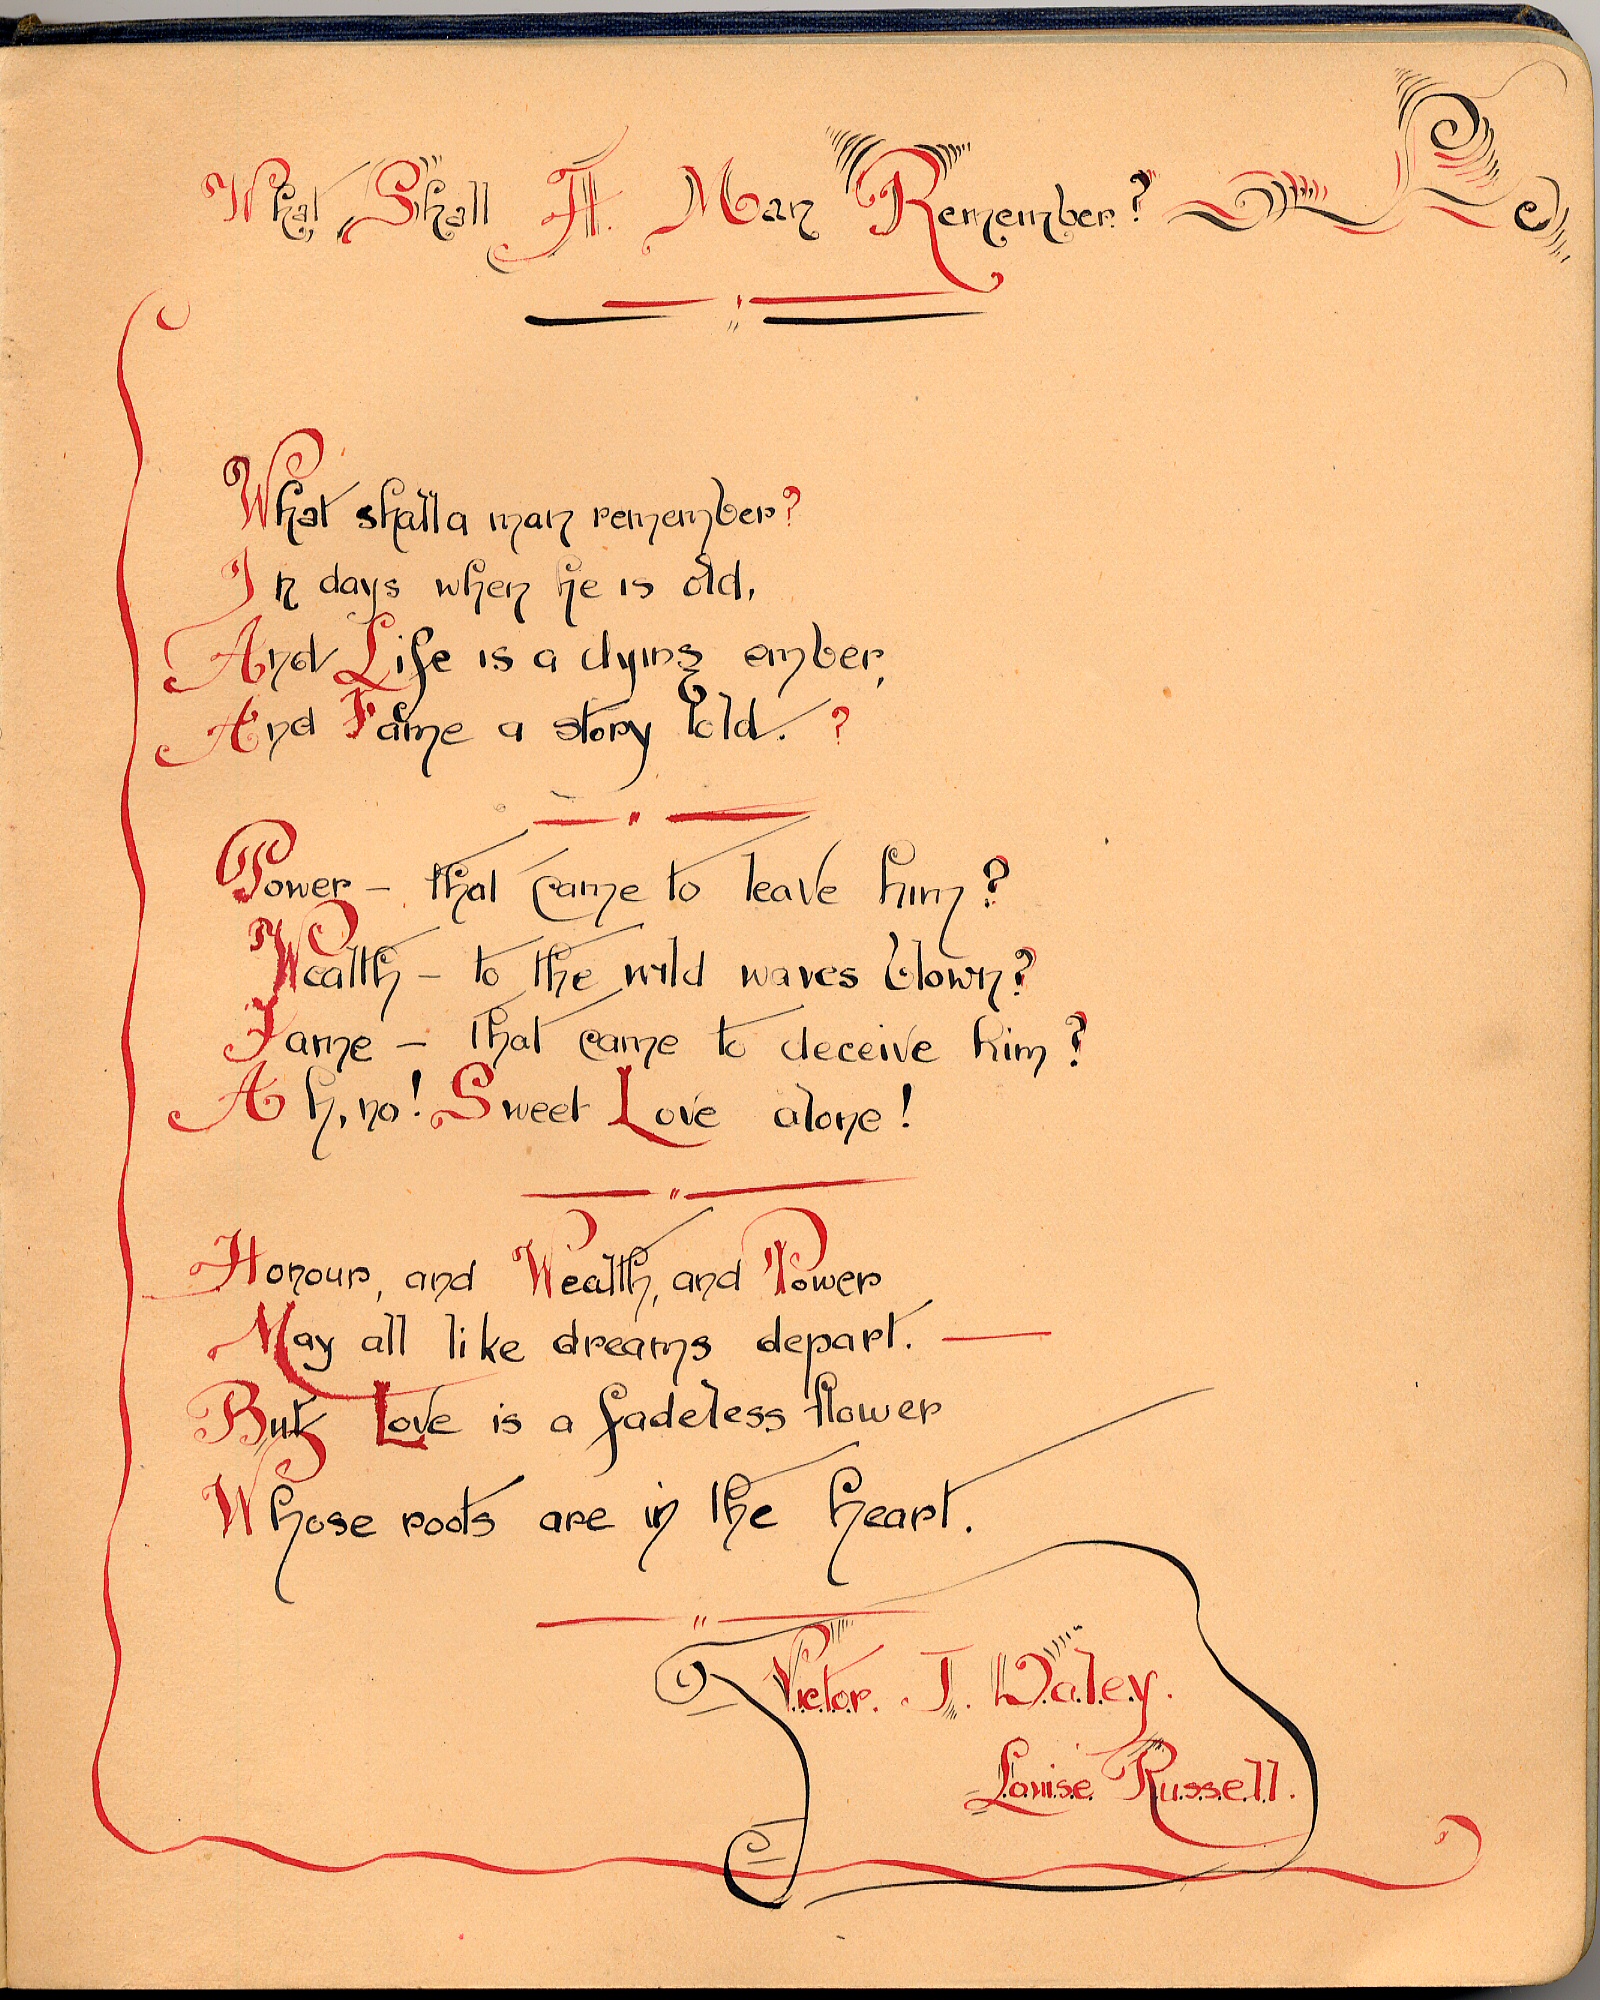 What Shall A Man Remember?
What shall a man remember?
In days when he is old,
And Life is a dying ember,
And Fame a story told. ?
Power – that came to leave him?
Wealth – to the wild waves blown?
Fame – that came to deceive him?
Ah, no! Sweet Love alone!
Honour, and Wealth, and Power
May all like dreams depart. —
But Love is a fadeless flower
Whose roots are in the heart.
Victor. J. Daley.
Louise Russell.